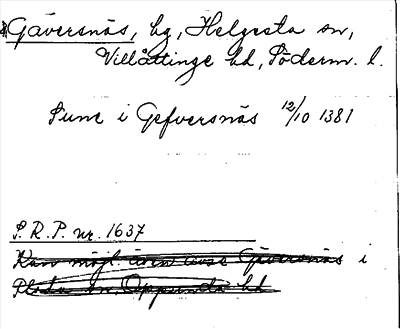 Gäversnäs, by, Helgesta sn,
Villåttinge hd, Söderm. l.
Sune i Gefversnäs 12/10 1381
S. R. P. nr. 1637
Kan möjl. även avse Gäversnäs i
sn, Oppunda hd